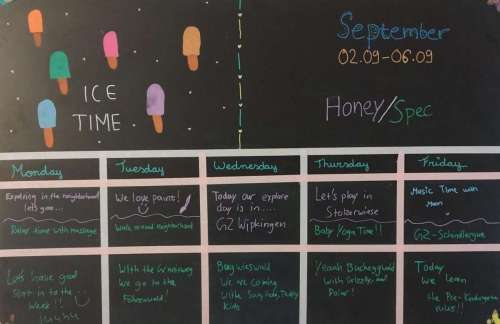 ICE
TIME
September
02.09-06.09
Honey/Spec
Monday
Tuesday
Wednesday
Thursday
Friday
Exploring in the neighborhood
let's goo...
Relax time with massage
We love paint!
Walk around neighborhood
Today our explore
day is in.....
GZ Wipkingen
Let's play in
Stolzewiese
Baby Yoga Time!!
Music Time with
GZ-Schindlergut
Let's have good
start in to the
Week!!
With the
we go to the
We are coming
with
Kids
Yeaah Bucheggwald
with Grizzly and
Polar!
Today
we learn
the Pre-Kindergarten
rules!!